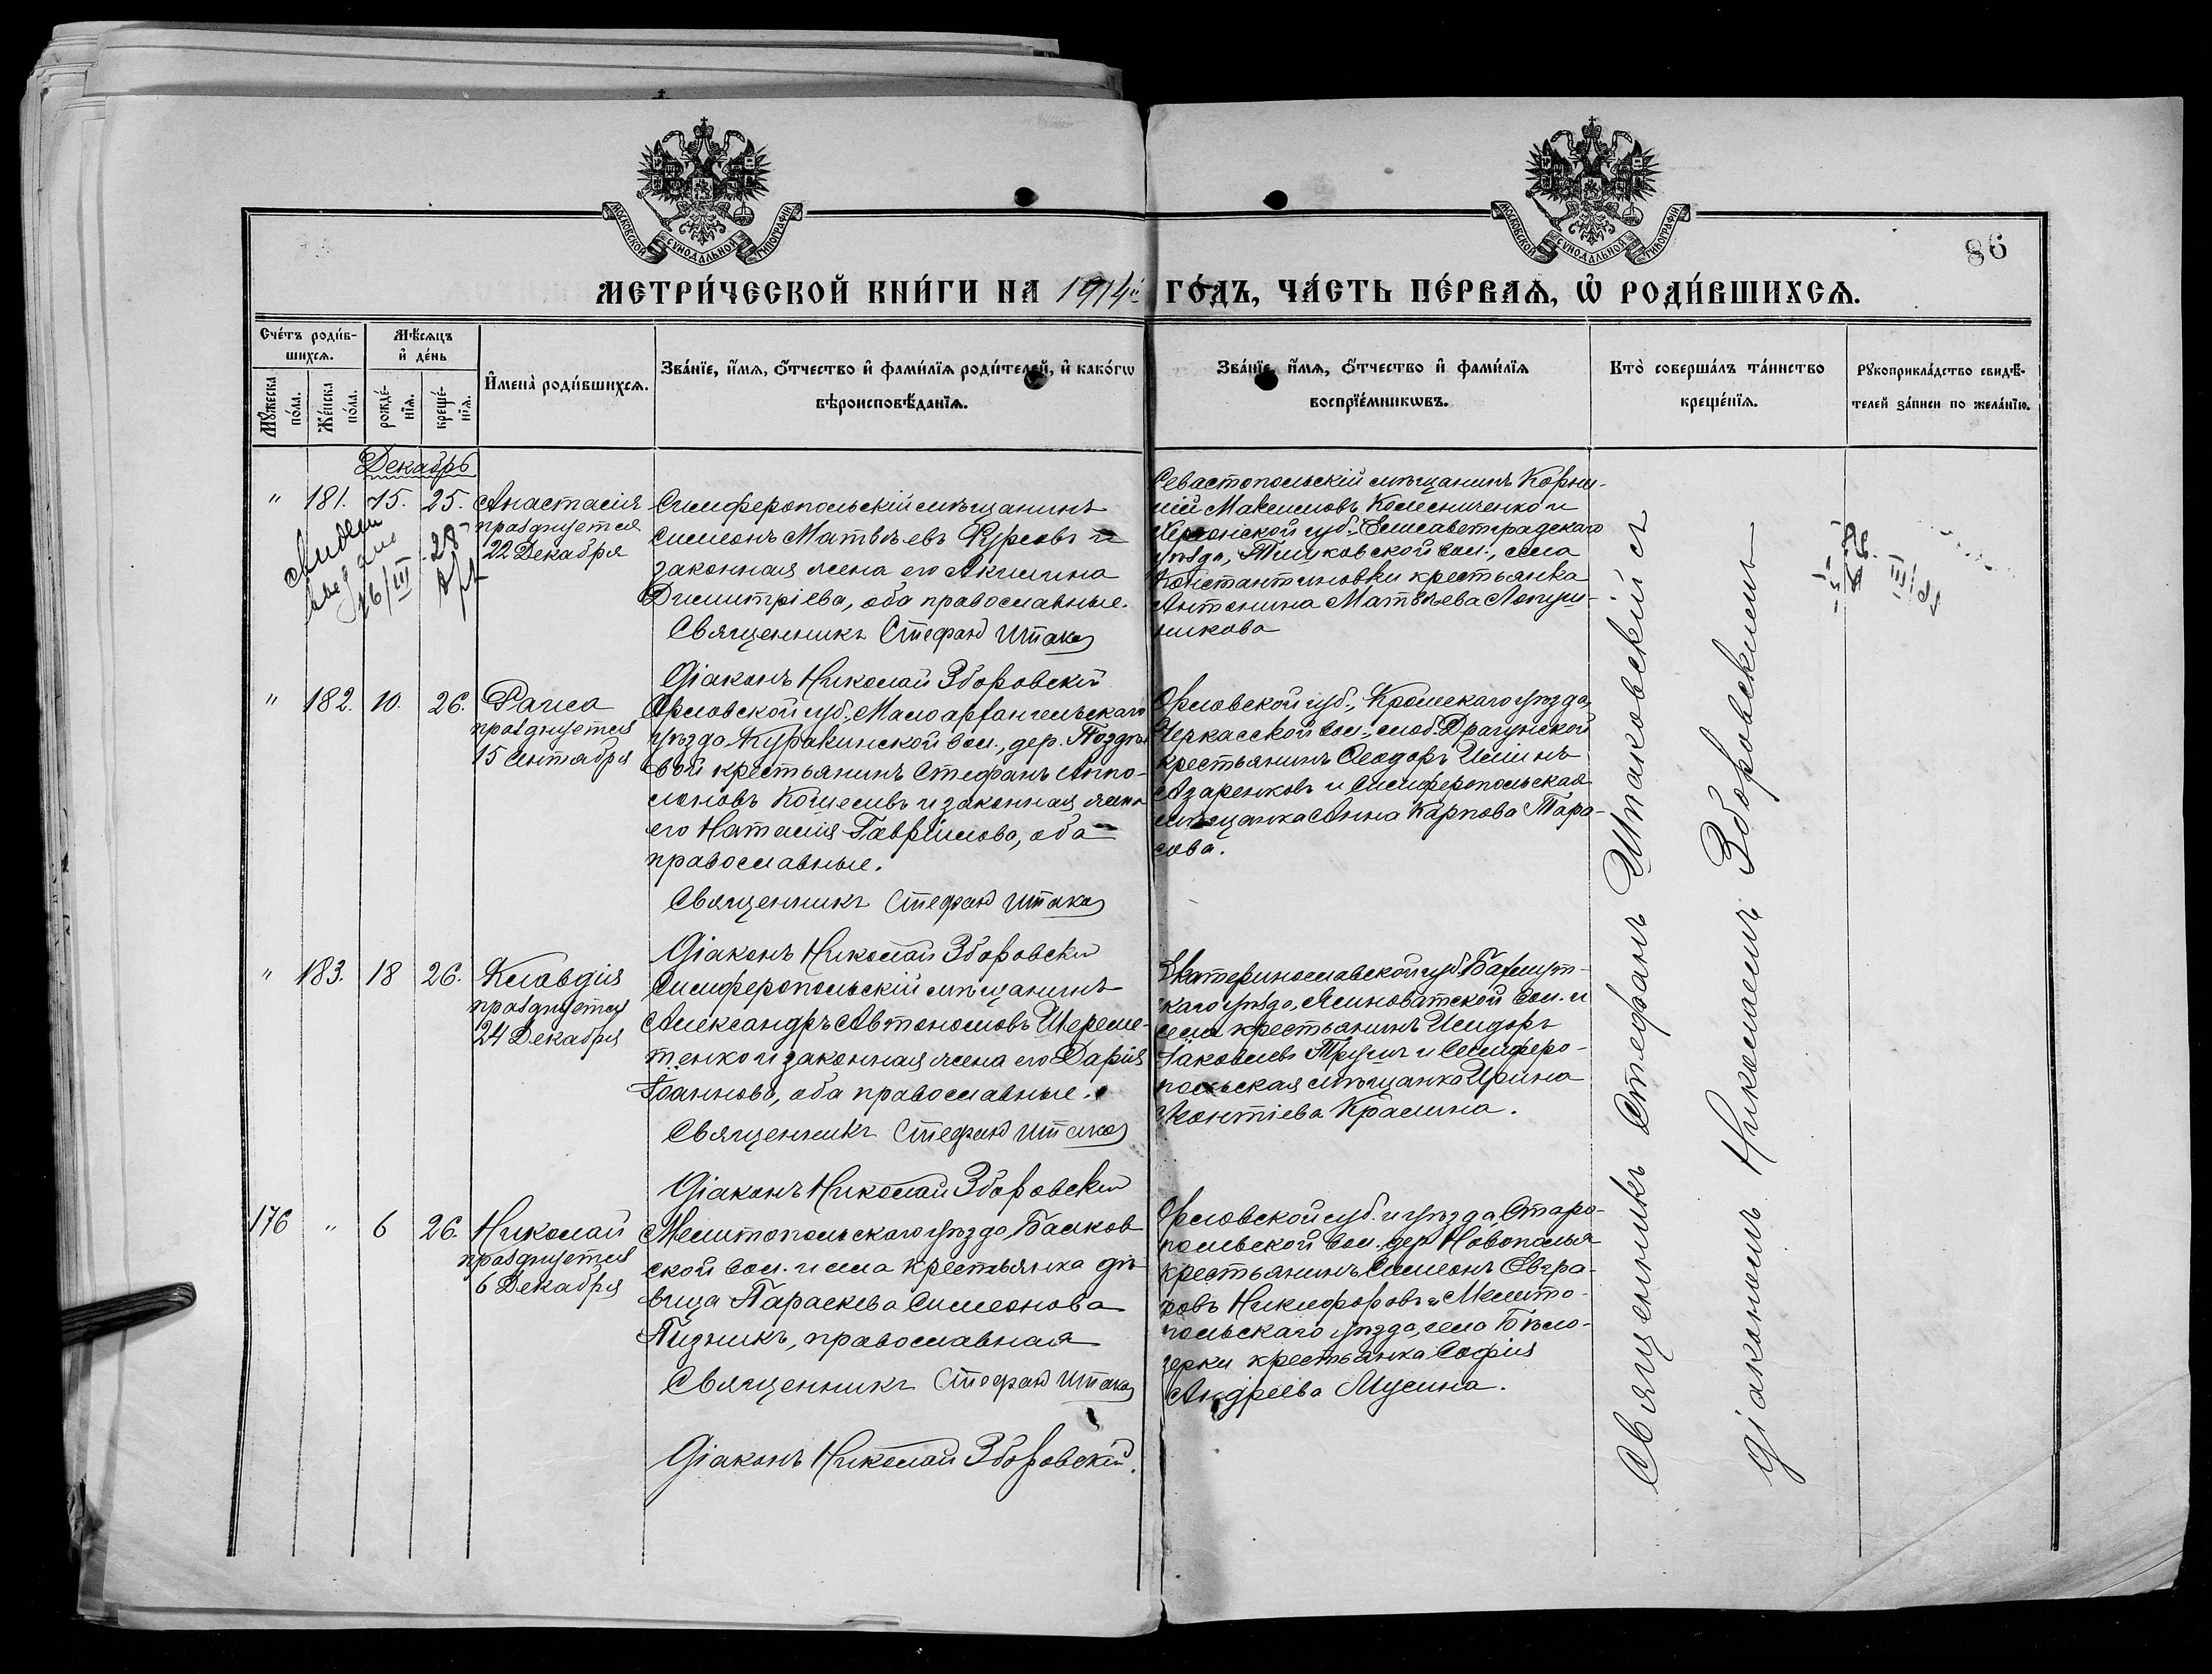 МОСКОВСКОЙ СѴНОДАЛЬНОЙ ТИПОГРАФІИ
МОСКОВСКОЙ СѴНОДАЛЬНОЙ ТИПОГРАФІИ
86
МЕТРИ́ЧЕСКОЙ КНИ́ГИ НА 1914й ГО́ДЪ, ЧА́СТЬ ПЕ́РВАѦ, Ѡ҆ РОДИ́ВШИХСѦ.
Сче́тъ роди́в-
шихсѧ.
Мѣ́сѧцъ
и҆ де́нь
Мꙋ́жеска
по́ла.
Же́нска
по́ла.
рожде́-
нїѧ.
креще́-
нїѧ.
И҆мена̀ роди́вшихсѧ.
Зва́нїе, и҆́мѧ, ѻ҆́тчество и҆ фами́лїѧ роди́телей, и҆ како́гѡ
вѣроисповѣ́данїѧ.
Зва́нїе, и҆́мѧ, ѻ҆́тчество и҆ фами́лїѧ
воспрїе́мникѡвъ.
Кто̀ соверша́лъ та́инство
креще́нїѧ.
Рꙋкоприкла́дство свидѣ́-
телей за́писи по жела́нїю.
Декабрь
" 181. 15. 25. Анастасія
празднуется
22 Декабря
выдано
16/III
28
Симферопольскій мѣщанинъ
Симеонъ Матвѣевъ Фурсовъ и
законная жена его Акилина
Димитріева, оба православные.
Священникъ Стефанъ Шпаков
Діаконъ Николай Зборовскій
Севастопольскій мѣщанинъ Корни-
лій Максимовъ Колесниченко и
Херсонской губ., Елисаветградскаго
уѣзда, Тишковской вол., села
Константиновки крестьянка
Антонина Матвѣева Лопуш-
никова
" 182. 10. 26. Раиса
празднуется
15 Сентября
Орловской губ., Малоархангельскаго
уѣзда Куракинской вол., дер. Поздѣе
вой крестьянинъ Стефанъ Аппо-
лоновъ Кошелевъ и законная жена
его Наталія Гавріилова, оба
православные.
Священникъ Стефанъ Шпаков
Діаконъ Николай Зборовскій
Орловской губ., Кромскаго уѣзда,
Черкасской вол., слоб. Драгунской
крестьянинъ Ѳеодоръ Ильинъ
Азаренковъ и Симферопольская
мѣщанка Анна Карпова Тара-
сова.
" 183. 18 26. Клавдія
празднуется
24 Декабря
Симферопольскій мѣщанинъ
Александръ Автономовъ Шереме-
тенко и законная жена его Дарія
Іоаннова, оба православные.
Священникъ Стефанъ Шпаков
Діаконъ Николай Зборовскій
Екатеринославской губ. Бахмут-
скаго уѣзда, Ясиноватской вол. и
села крестьянинъ Исидоръ
Іаковлевъ и Симферо-
польская мѣщанка Ирина
Леонтіева Красина.
176 " 6 26. Николай
празднуется
6 Декабря
Мелитопольскаго уѣзда Балков
ской вол. и села крестьянка дѣ-
вица Параскева Симеонова
Пизникъ, православная
Священникъ Стефанъ Шпаков
Діаконъ Николай Зборовскій.
Орловской губ. и уѣзда, Старо-
польской вол., дер. Новополья
крестьянинъ Симеонъ Евгра-
фовъ Никифоровъ и Мелито-
польскаго уѣзда, села Бѣло-
зерки крестьянка Софія
Андреева Мусина.
Священникъ Стефанъ Шпаковскій съ
діакономъ Николаемъ Зборовскимъ